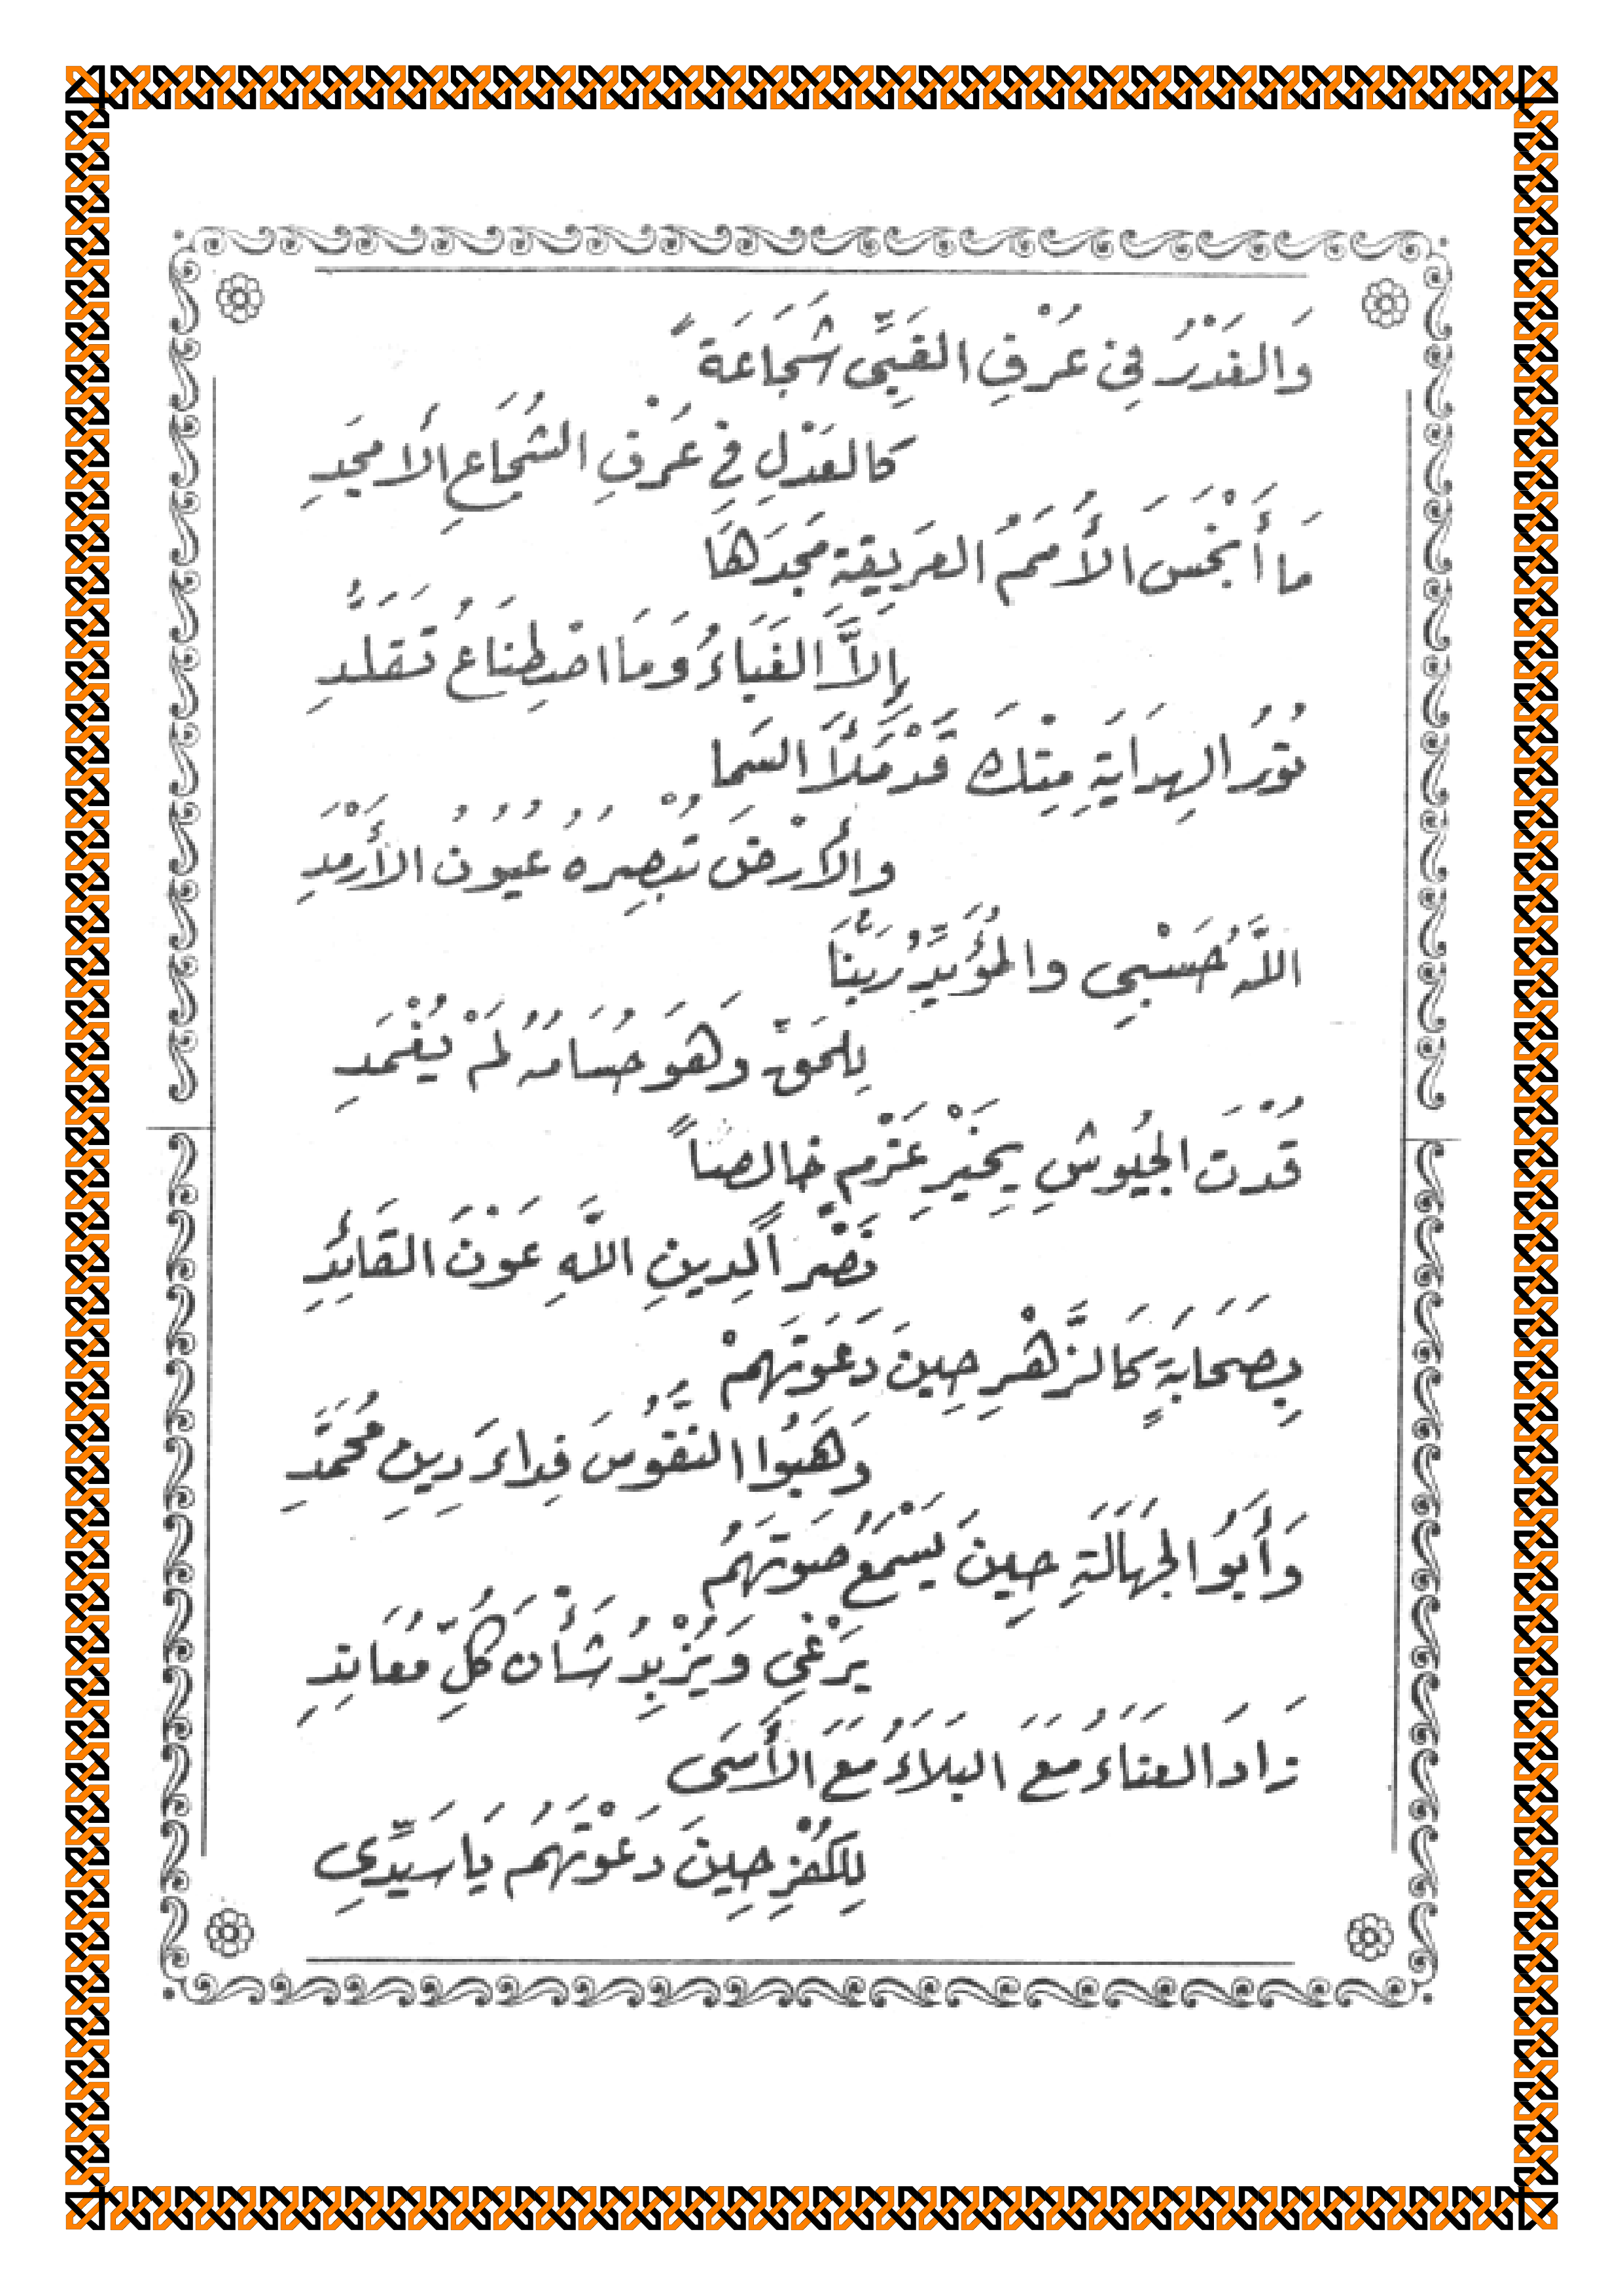 وَالغَدْرُ فِي عُرْفِ الغَبِيِّ شَجَاعَةً
كالعَدْلِ فِي عُرْفِ الشُجَاعِ الأَمجَدِ
مَا أَبْخَسَ الأُمَمُ العَرِيقَةِ مَجدَهَا
إِلاَّ الغَبَاءُ وَمَا اصْطِنَاعُ تَقَلُّدِ
نُورُ الهِدَايَةِ مِنْكَ قَدْ مَلأَ السَما
والأَرْضَ تُبْصِرُهُ عُيُونُ الأَرْمَدِ
اللَّهُ حَسْبِي والمُؤَيِّدُ رَبُّنَا
لِلحَقِّ وَهَوَ حُسَامُهُ لَمْ يُغْمَدِ
قُدْتَ الجُيُوشِ بِخَيْرِ عَزْمٍ خالِصاً
نَصْراً لِدِينِ اللَّهِ عَوْنَ القَائِدِ
بِصَحَابَةٍ كَالزَّهْرِ حِينَ دَعَوتَهمْ
وَهَبُوا النُّفُوسَ فِداءَ دِينِ مُحَمَّدِ
وَأَبُو الجَهَالَةِ حِينَ يَسْمَعُ صَوتَهَمُ
يَرْغِي وَيُزْبِدُ شَأْنَ كُلِّ مُعَانِدِ
زَادَ العَنَاءُ مَعَ البَلاَءُ مَعَ الأَسَى
لِلكُفْرِ حِينَ دَعَوْتَهُم يَا سَيِّدِي